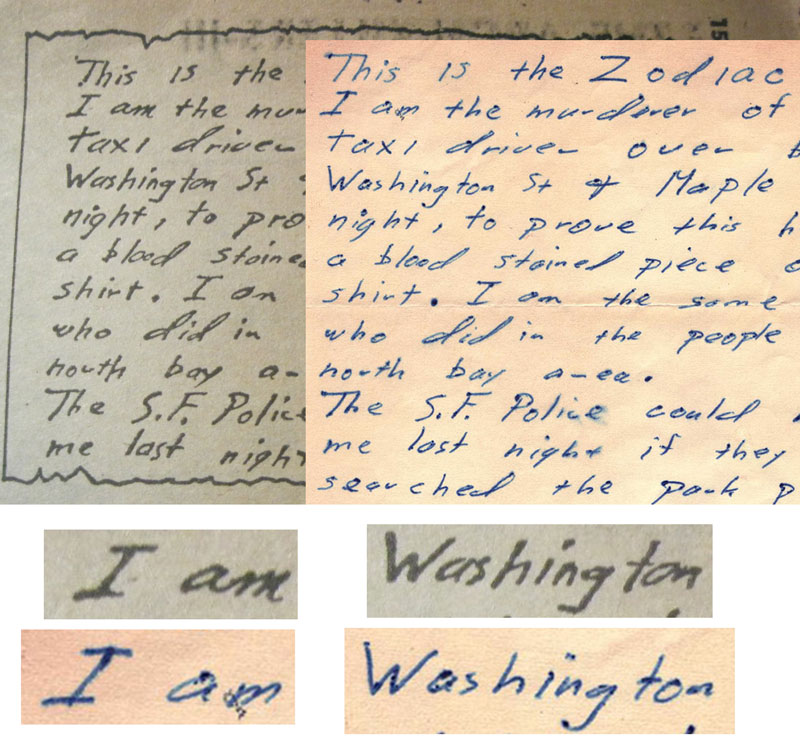 This is the
I am the mur
taxi driver
Washington St
night, to pro
a blood staine
shirt. I am
who did in
north bay ar
The S.F. Police
me last night
This is the Zodiac
I am the murderer of
taxi driver over
Washington St & Maple
night, to prove this
a blood stained piece
shirt. I am the same
who did in the people
north bay area.
The S.F. Police could
me last night if they
searched the park p
I am
Washington
I am
Washington